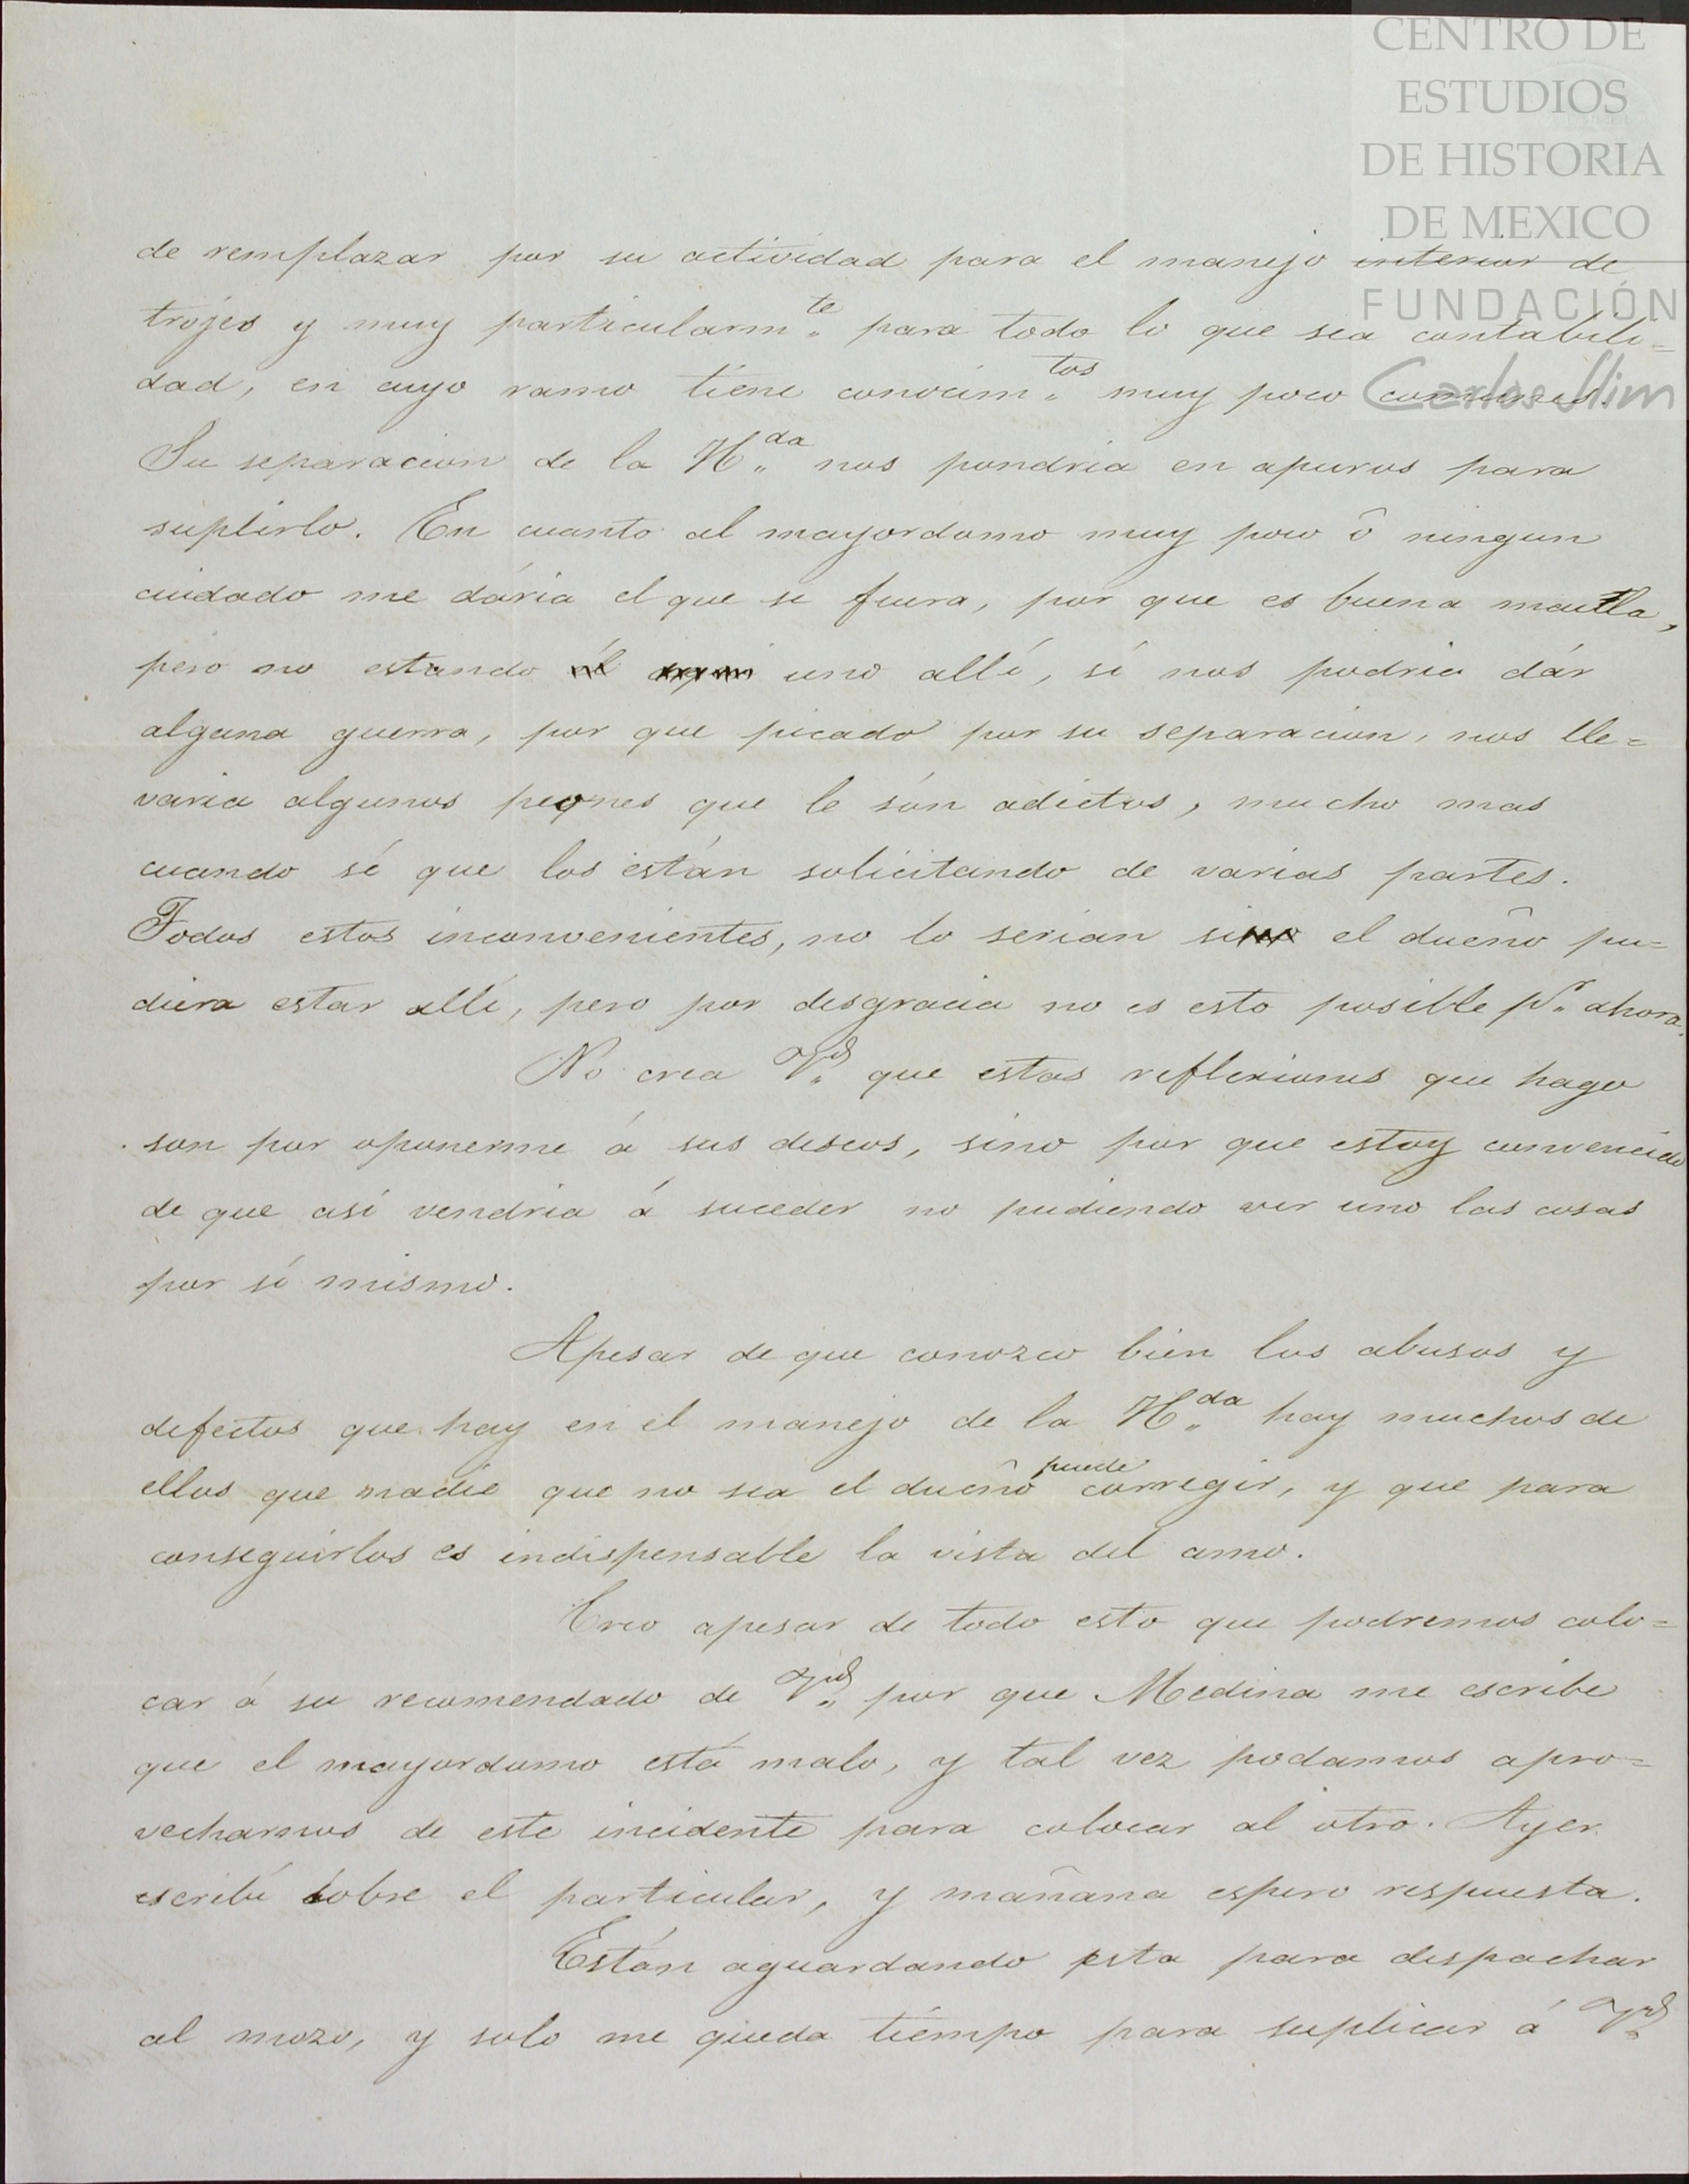 CENTRO DE
ESTUDIOS
DE HISTORIA
DE MEXICO
FUNDACIÓN
Carlos Slim
de remplazar por su actividad para el manejo interior de
trojes y muy particularm.te para todo lo que sea contabili=
dad, en cuyo ramo tiene conocim.tos muy poco comunes.
Su separacion de la H.da nos pondria en apuros para
suplirlo. En cuanto al mayordomo muy poco ô ningun
cuidado me dária el que se fuera, por que es buena maula,
pero no estando uno allí, sí nos podria dár
alguna guerra, por que picado por su separacion, nos lle=
varia algunos peones que le són adictos, mucho mas
cuando sé que los están solicitando de varias partes.
Todos estos inconvenientes, no lo serian si el dueño pu=
diera estar allí, pero por desgracia no es esto posible p.r ahora.
No crea V.d que estas reflexiones que hago
son por oponerme á sus deseos, sino por que estoy convencido
de que así vendria á suceder no pudiendo ver uno las cosas
por sí mismo.
Apesar de que conozco bien los abusos y
defectos que hay en el manejo de la H.da hay muchos de
ellos que nadie que no sea el dueño puede corregir, y que para
conseguirlos es indispensable la vista del amo.
Creo apesar de todo esto que podremos colo=
car á su recomendado de V.d por que Medina me escribe
que el mayordomo está malo, y tal vez podamos apro=
vecharnos de este incidente para colocar al otro. Ayer
escribí sobre el particular, y mañana espero respuesta.
Están aguardando esta para despachar
al mozo, y solo me queda tiempo para suplicar á V.d